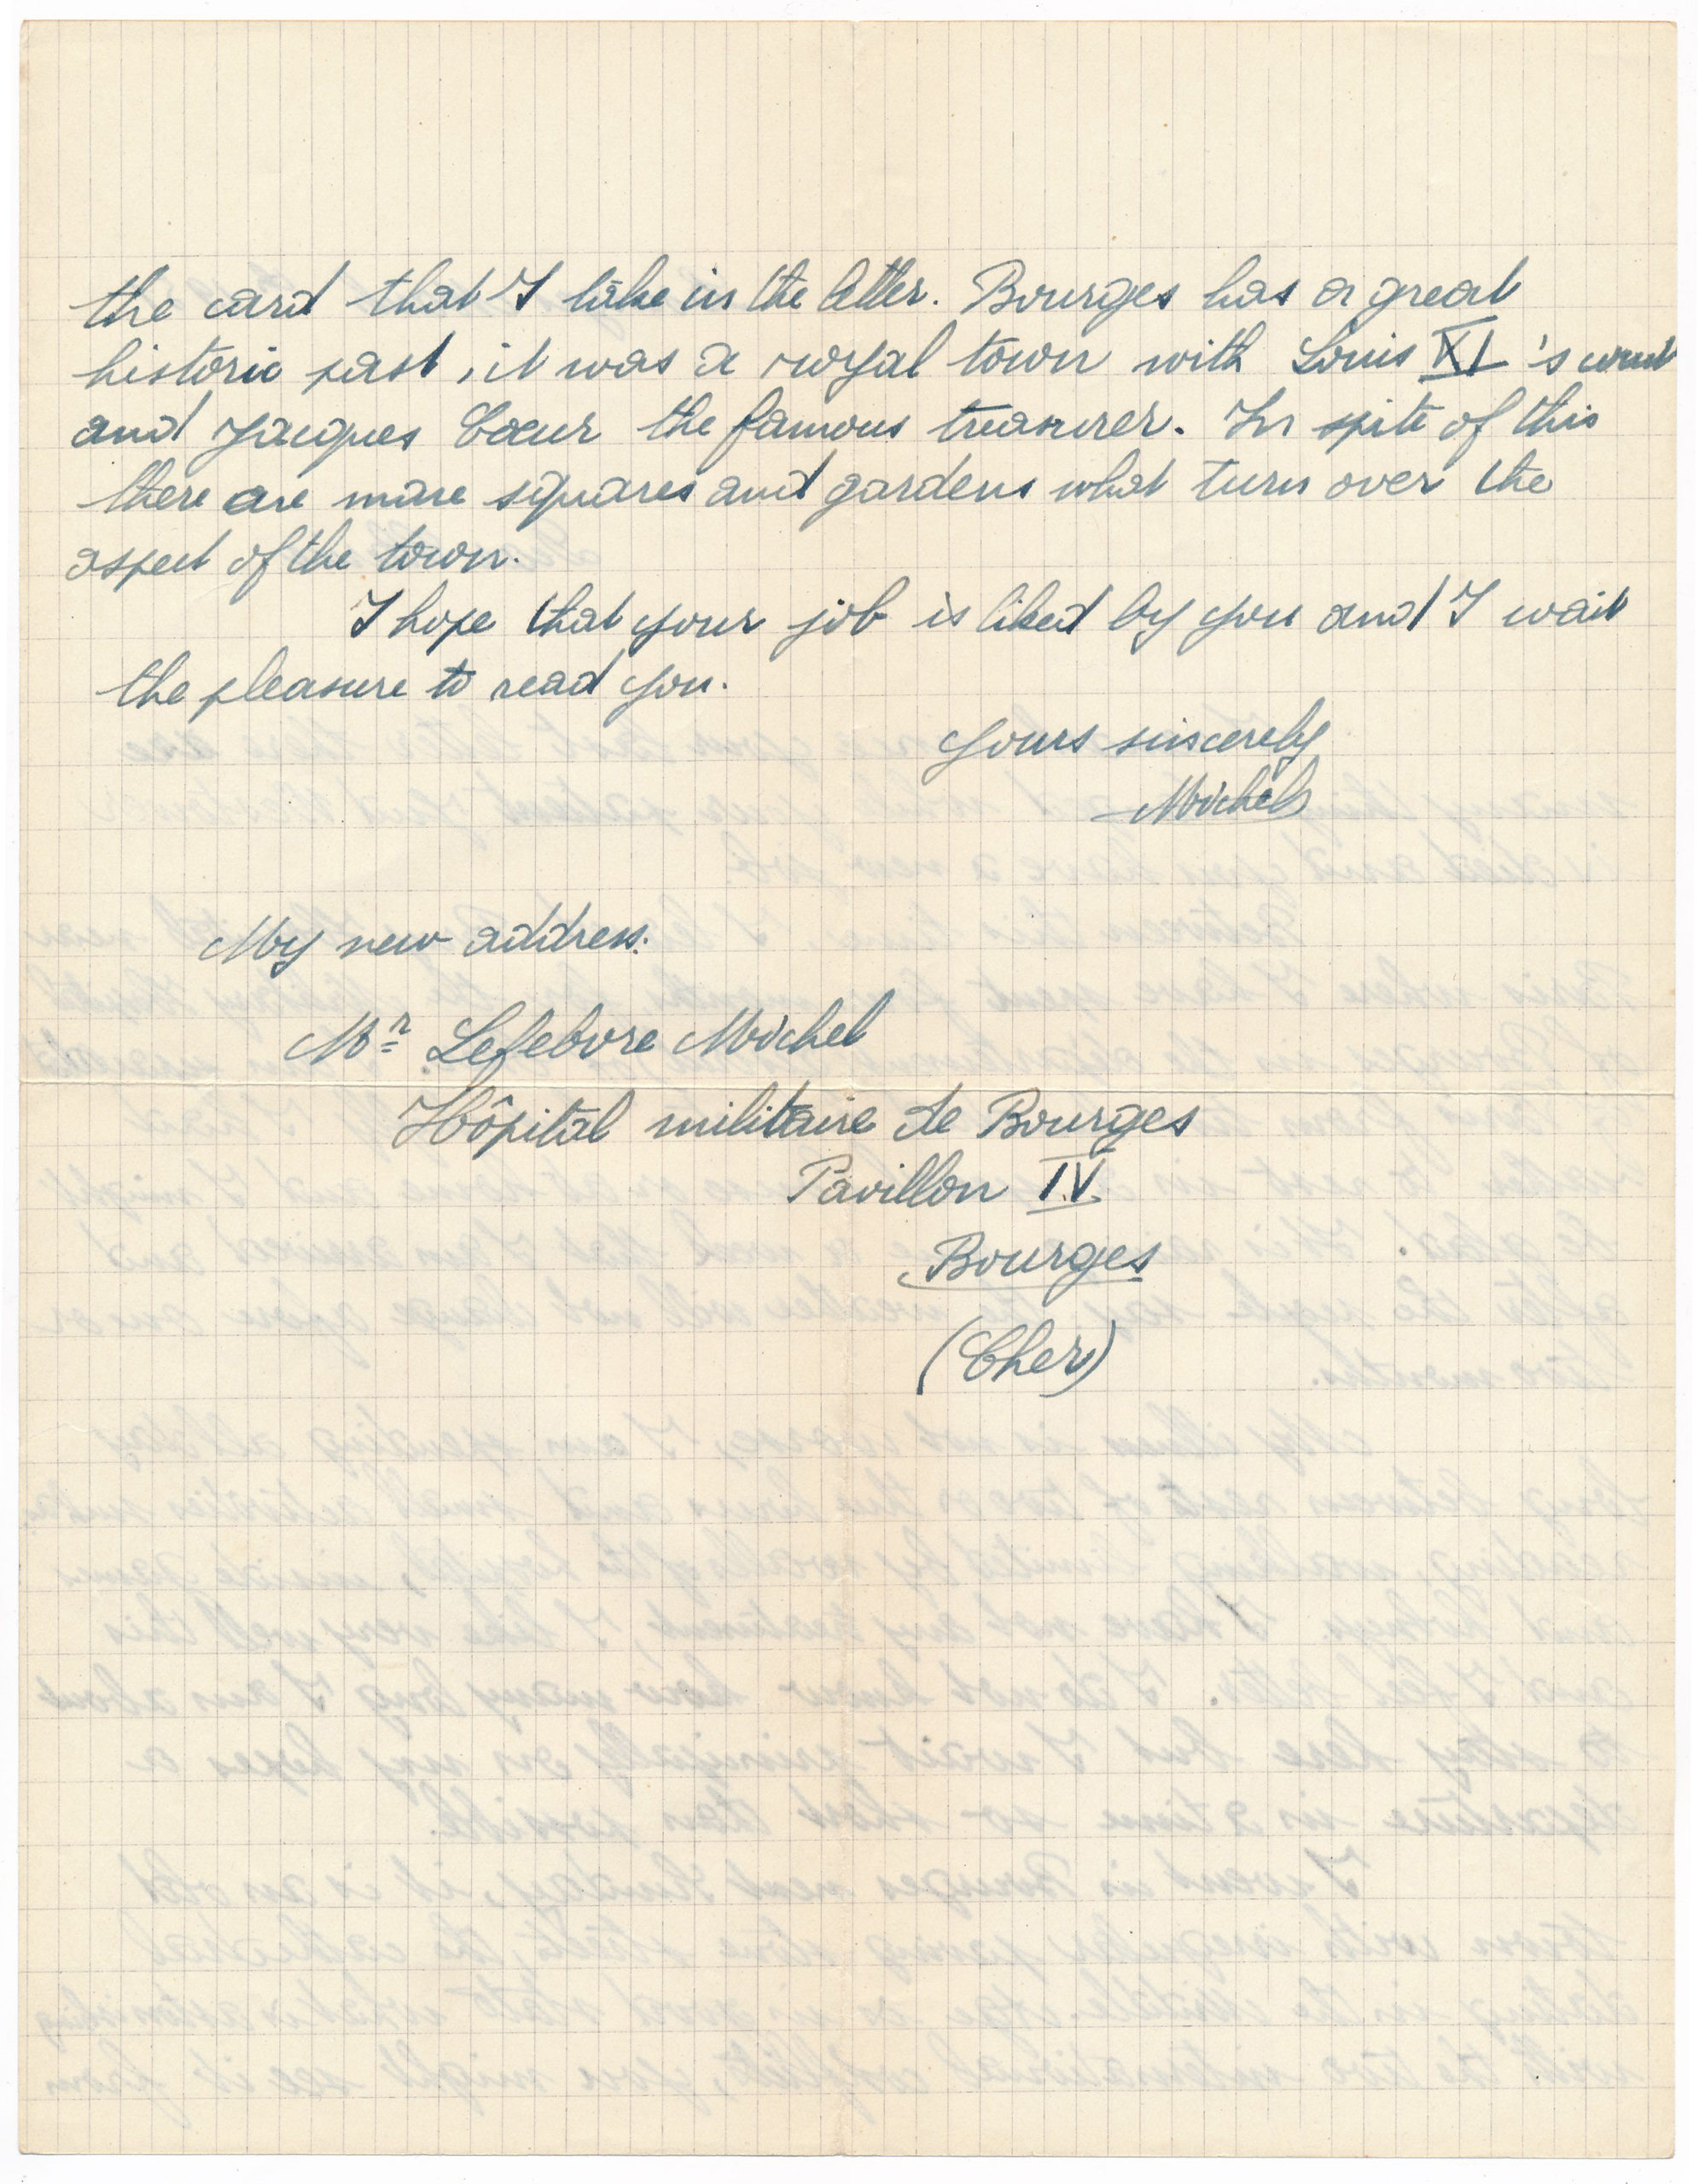 the card that I take in the letter. Bourges has a great
historic past, it was a royal town with Louis XI 's court
and Jacques Coeur the famous treasurer. In spite of this
there are more squares and gardens what turn over the
aspect of the town.
I hope that your job is liked by you and I wait
the pleasure to read you.
Yours sincerely
Michel
My new address:
Mr Lefebvre Michel
Hôpital militaire de Bourges
Pavillon IV
Bourges
(Cher)